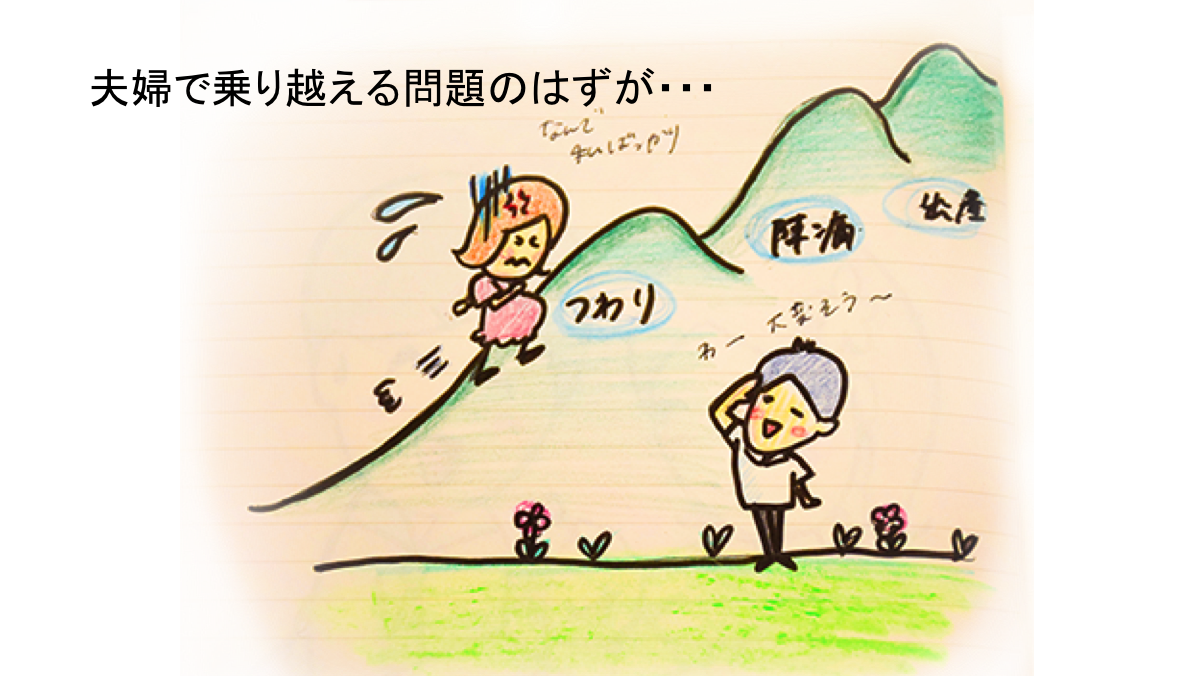 夫婦で乗り越える問題のはずが・・・
なんで
私ばっかり
つわり
陣痛
出産
わー 大変そう〜